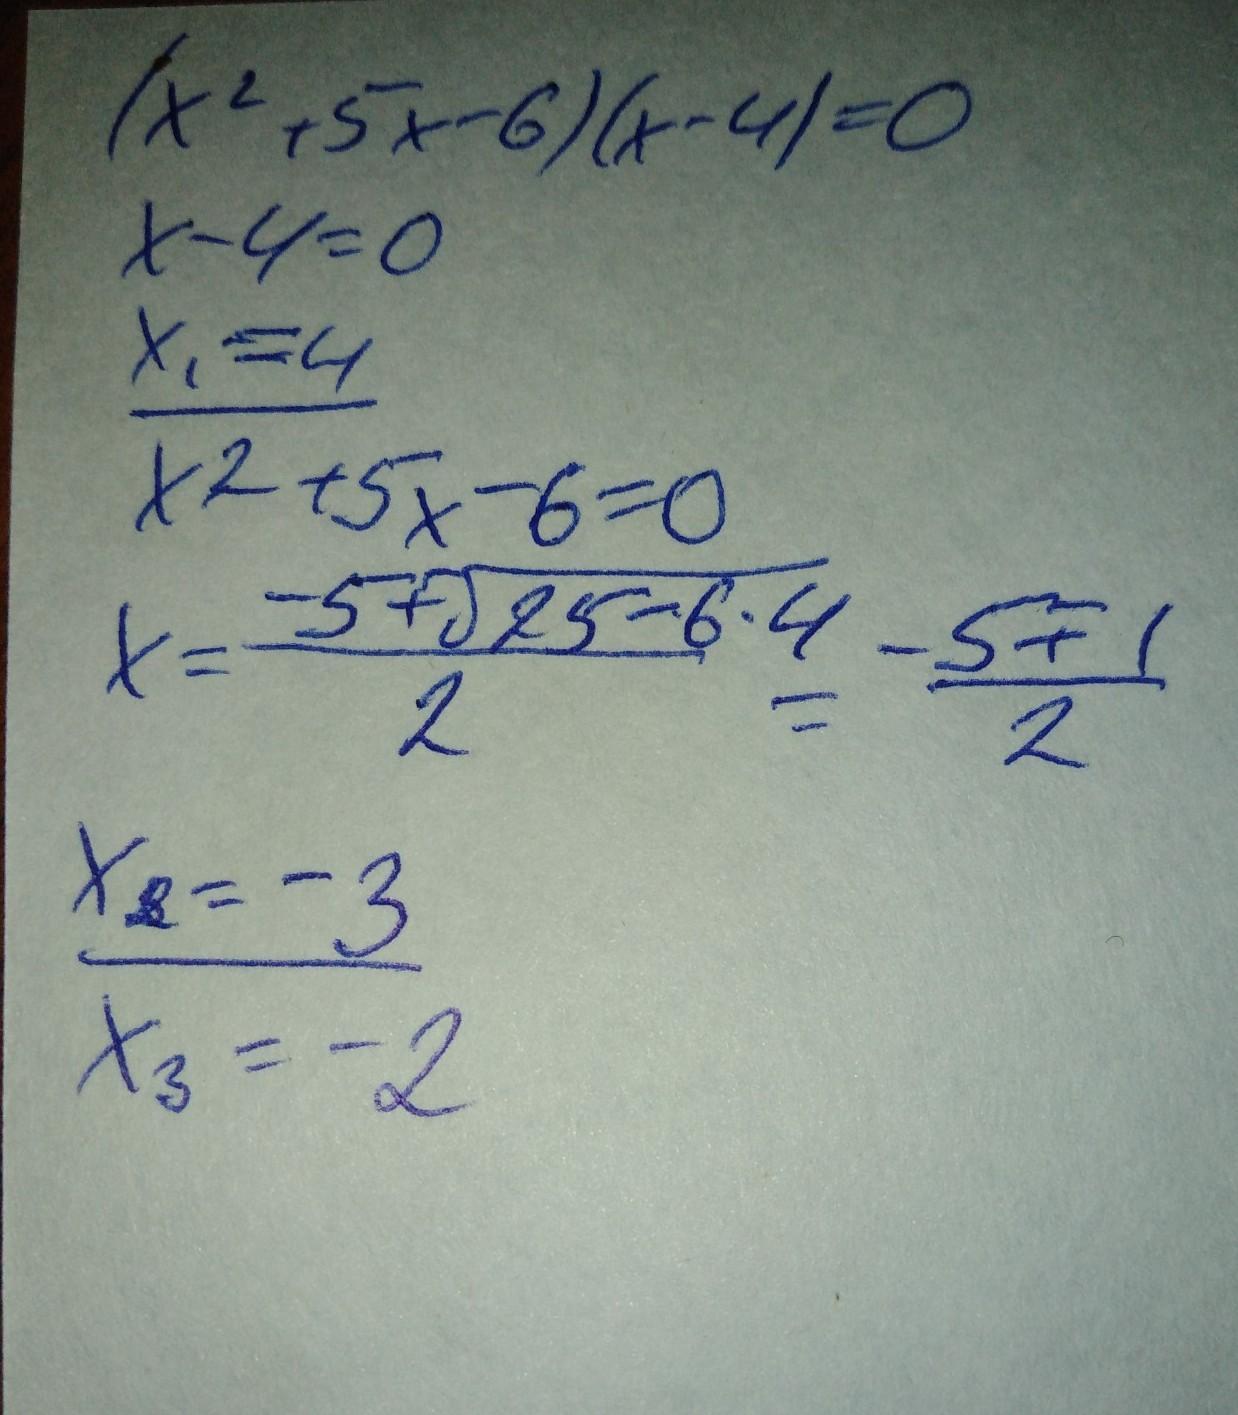 (x² + 5x - 6)(x - 4) = 0
x - 4 = 0
x₁ = 4
x2 + 5x - 6 = 0
x = (-5 ∓ √(25 - 6 · 4)) / 2 = (-5 ∓ 1) / 2
x₂ = -3
x₃ = -2